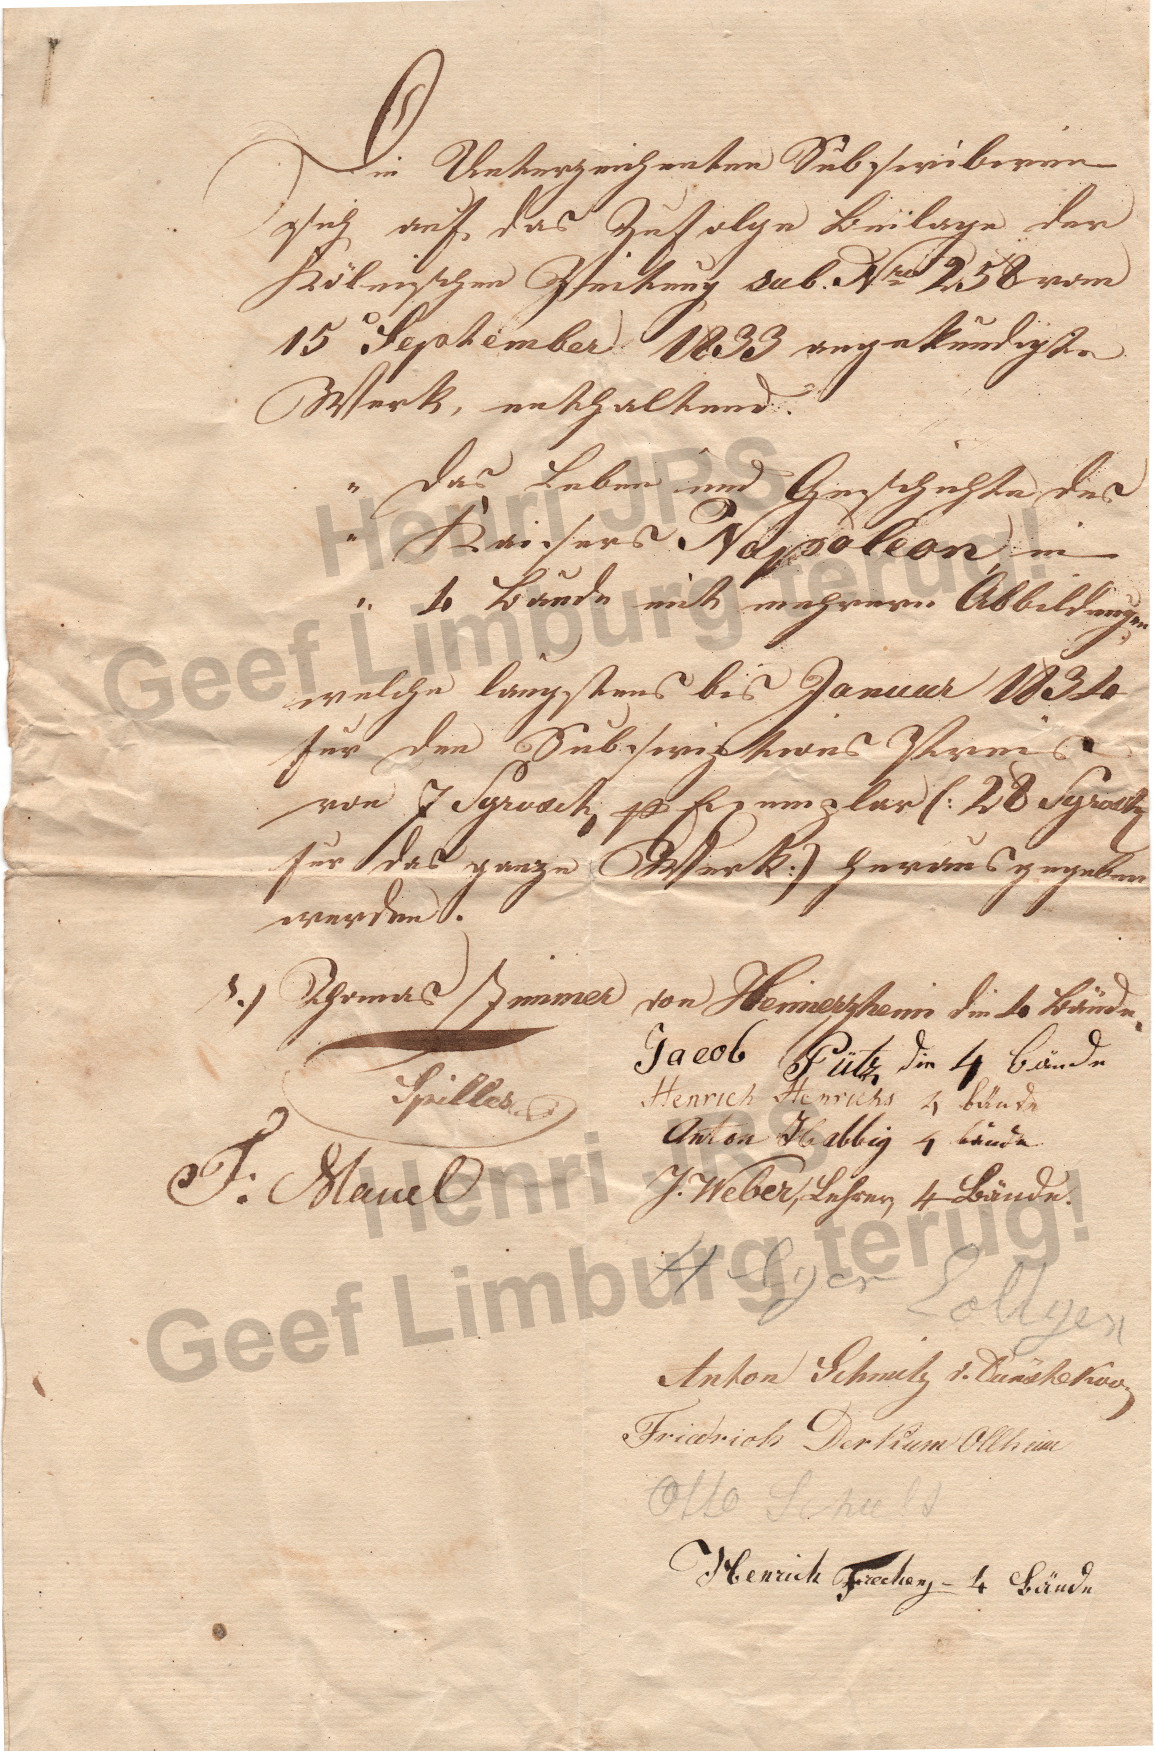 Die Unterzeichneten Subscribiren
sich auf das Zufolge Beilage der
Kölnischen Zeitung sub. Nro 258 vom
15 September 1833 angekündigte
Werk, enthaltend.
" das Leben und Geschichte des
" Kaisers Napoleon, in
" 4 Bände mit mehrern Abbildungen
welche längstens bis Januar 1834
für den Subscriptions Preis
von 7 Sgrosch pr Exemplar (: 28 Sgrosch
für das ganze Werk :) herausgegeben
werden.
1.) Thomas Zimmer von Heimerzheim die 4 Bände.
Jacob Pütz die 4 bände
Spilles
Henrich Henrichs 4 bände
Anton Habbig 4 bände
F. Manel
J. Weber, Lehrer, 4 Bände.
Anton Schmitz v.
Fridrich Derkum Ollheim
Otto
Henrich Frechen - 4 Bände
Henri JRS
Geef Limburg terug!
Henri JRS
Geef Limburg terug!